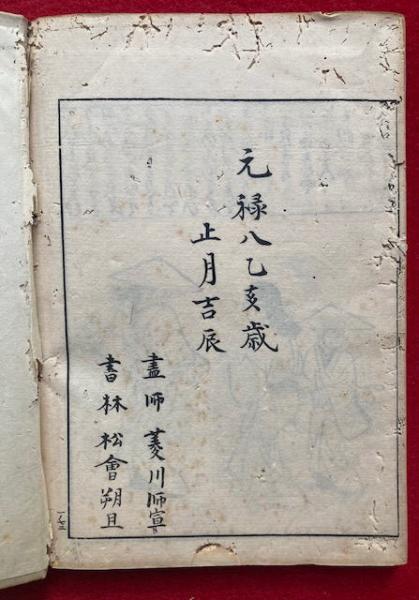 元禄八乙亥歳
正月吉辰
畫師 菱川師宣
書林 松會朔旦